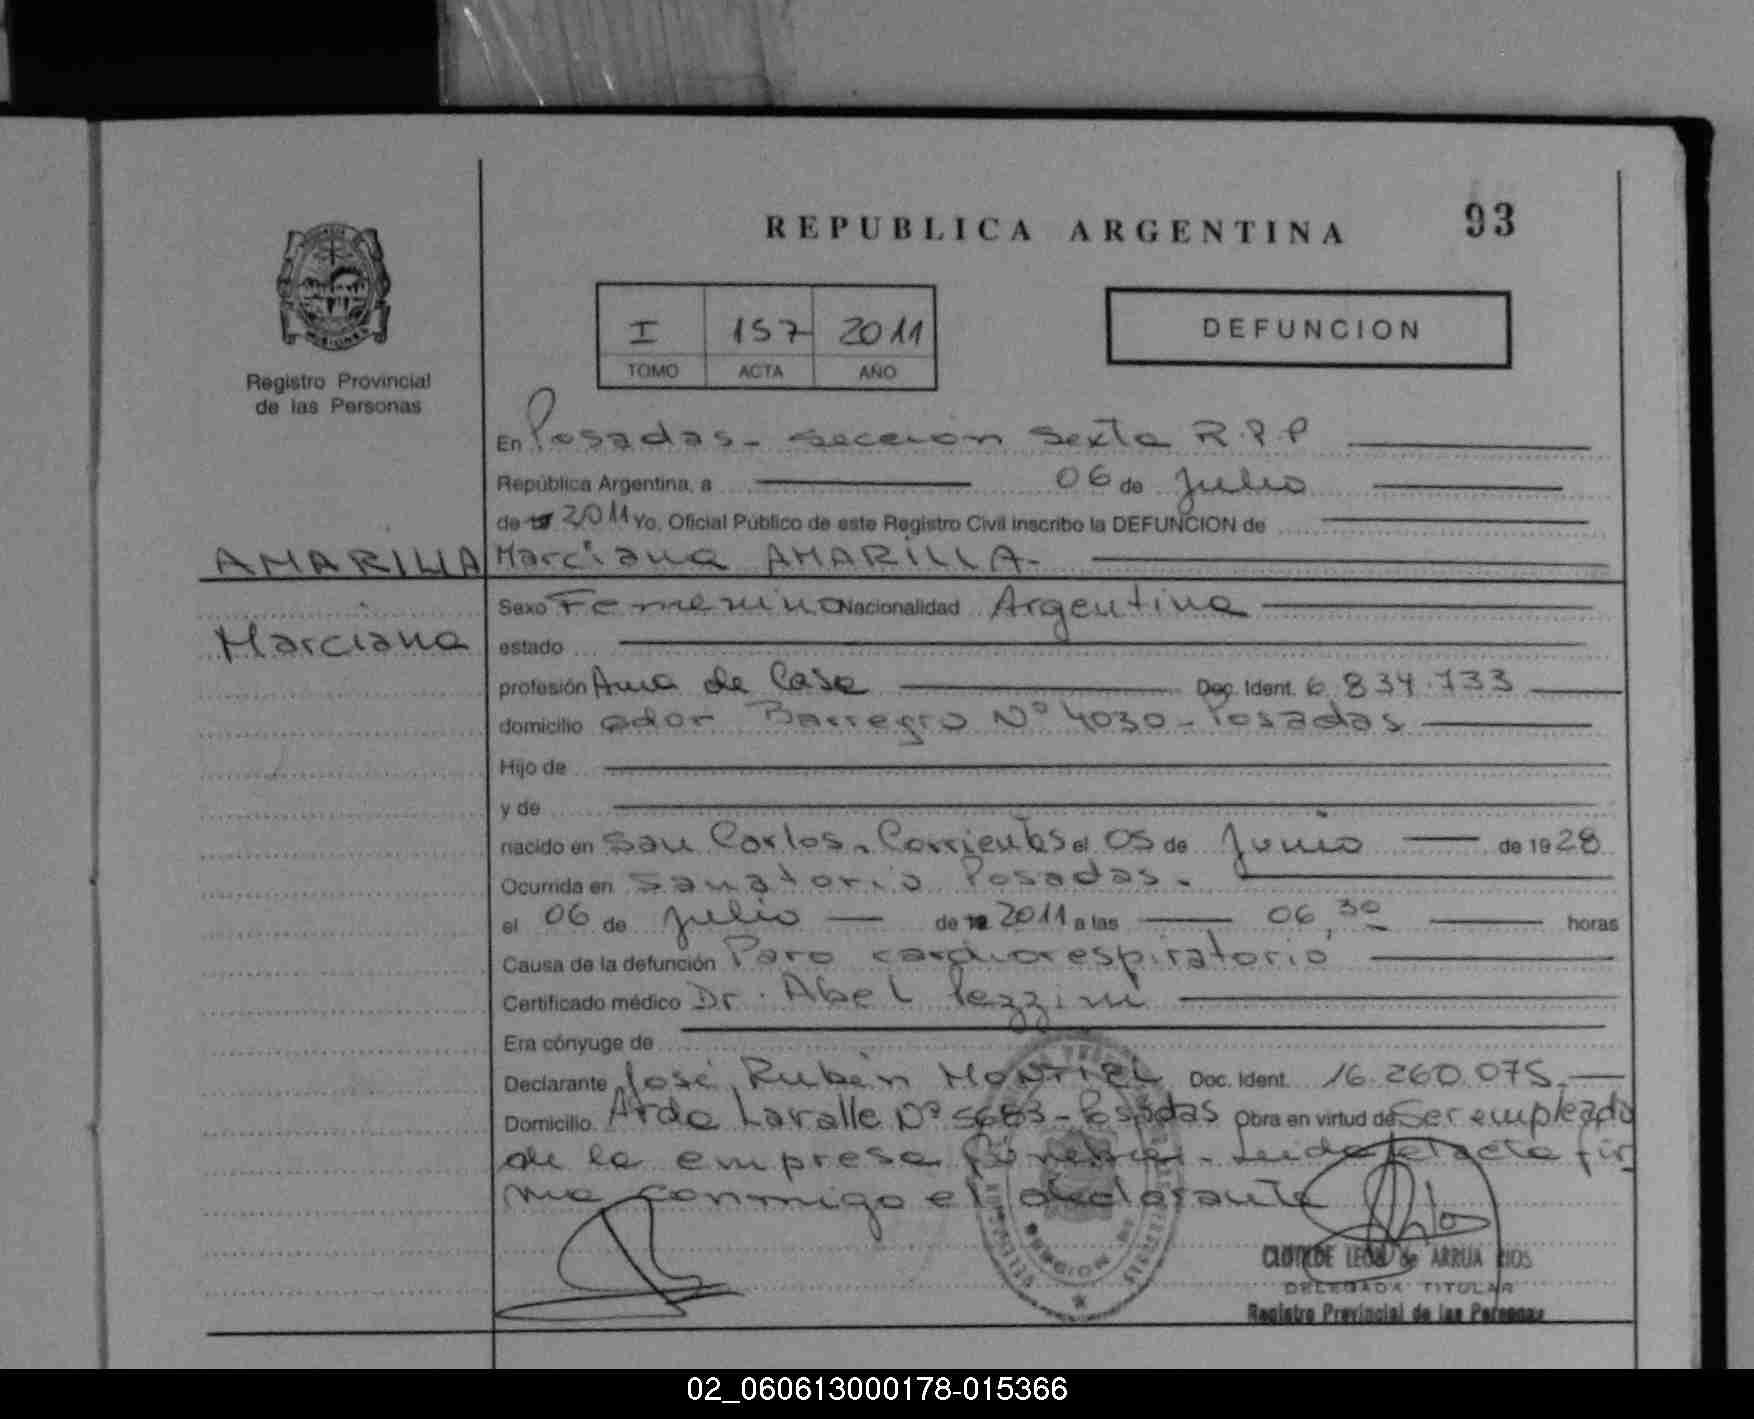 REPUBLICA ARGENTINA 93
I 157 2011
TOMO ACTA AÑO
DEFUNCION
MISIONES
Registro Provincial
de las Personas
En Posadas - sección sexta R.P.P
República Argentina, a 06 de Julio
de 19 2011 Yo, Oficial Público de este Registro Civil inscribo la DEFUNCION de
AMARILLA Marciana AMARILLA-
Sexo Femenino Nacionalidad Argentina
Marciana
estado
profesión Ama de Casa Doc. Ident. 6.834.733
domicilio Barregro Nº 4030 - Posadas
Hijo de
y de
nacido en San Carlos. Corrientes el 05 de Junio de 19 28
Ocurrida en Sanatorio Posadas.
el 06 de Julio de 19 2011 a las 06,30 horas
Causa de la defunción Paro cardiorespiratorio
Certificado médico Dr. Abel Pezzini
Era cónyuge de
Declarante José Rubén MONTIEL Doc. Ident. 16.260.075.
Domicilio Avda Lavalle Nº 5683 - Posadas Obra en virtud de Ser empleado
de la empresa fúnebre. Leida el acta fir
ma conmigo el declarante
CLOTILDE LEON de ARRUA RIOS
DELEGADA TITULAR
Registro Provincial de las Personas
02_060613000178-015366